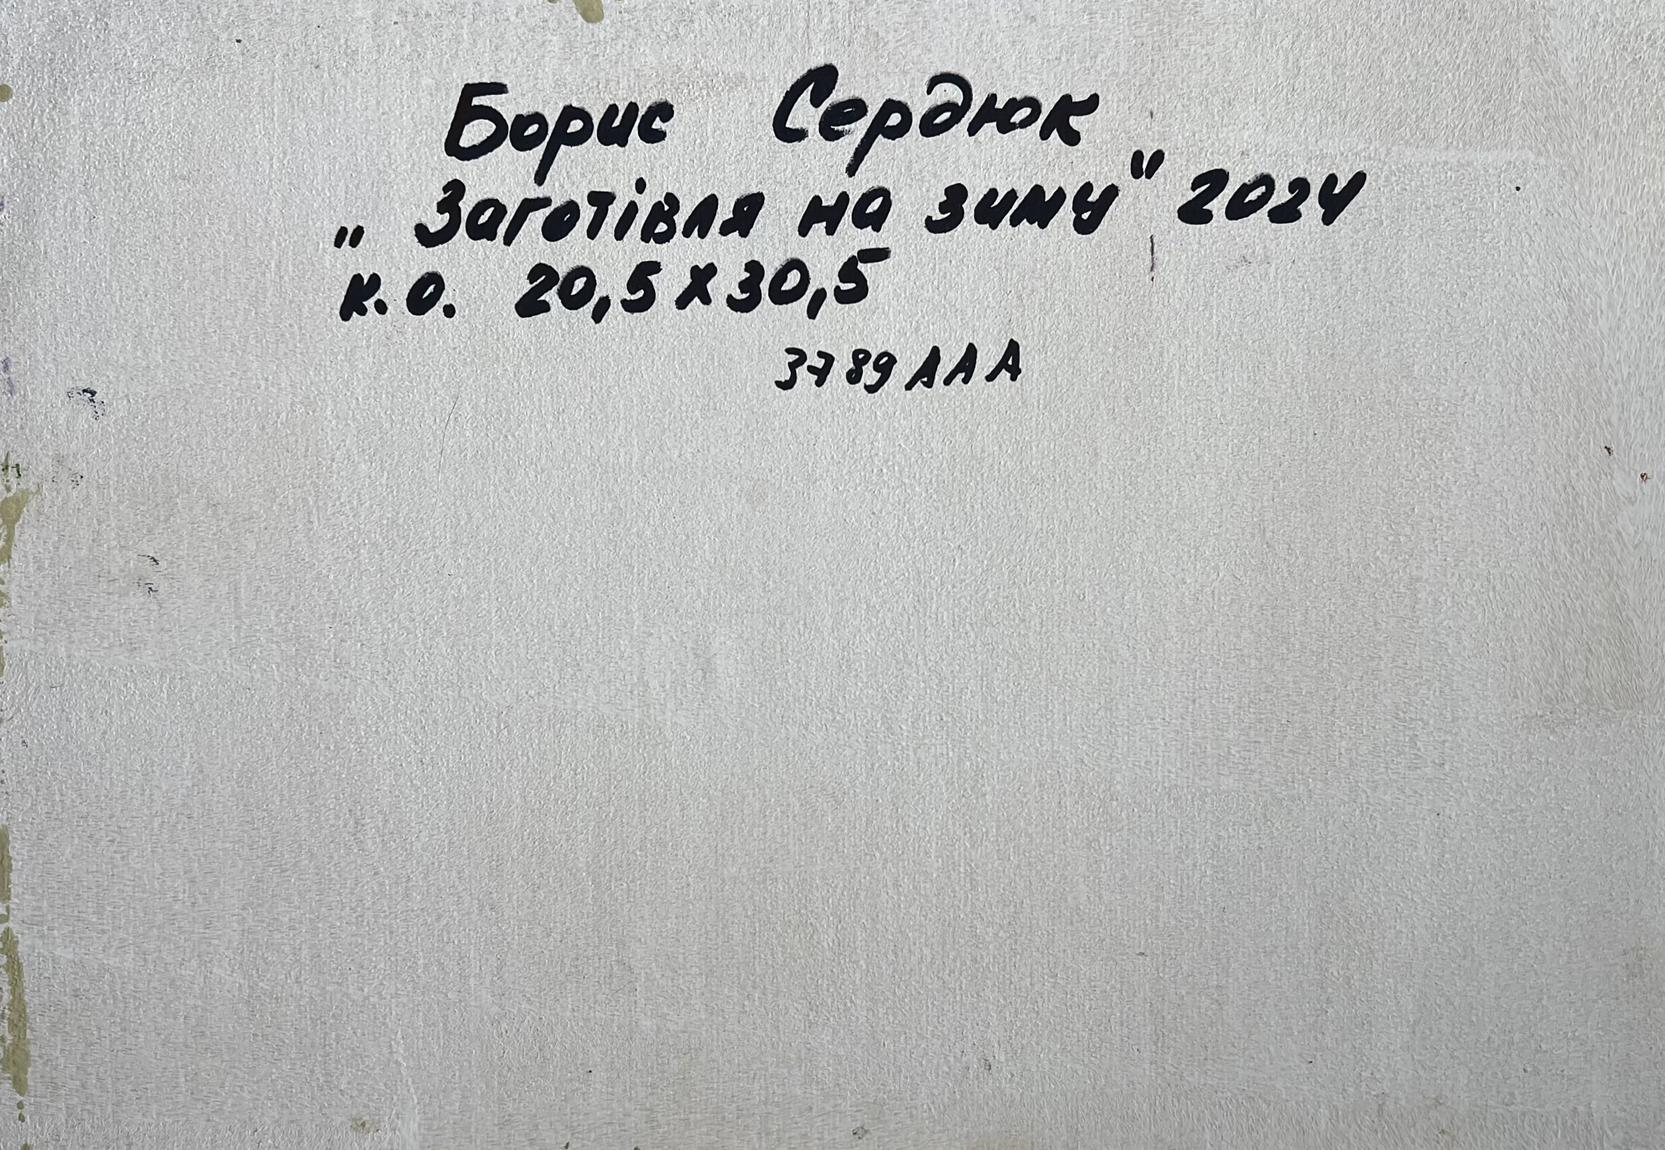 Борис Сердюк
"Заготівля на зиму" 2024
к.о. 20,5х30,5
3789 ААА